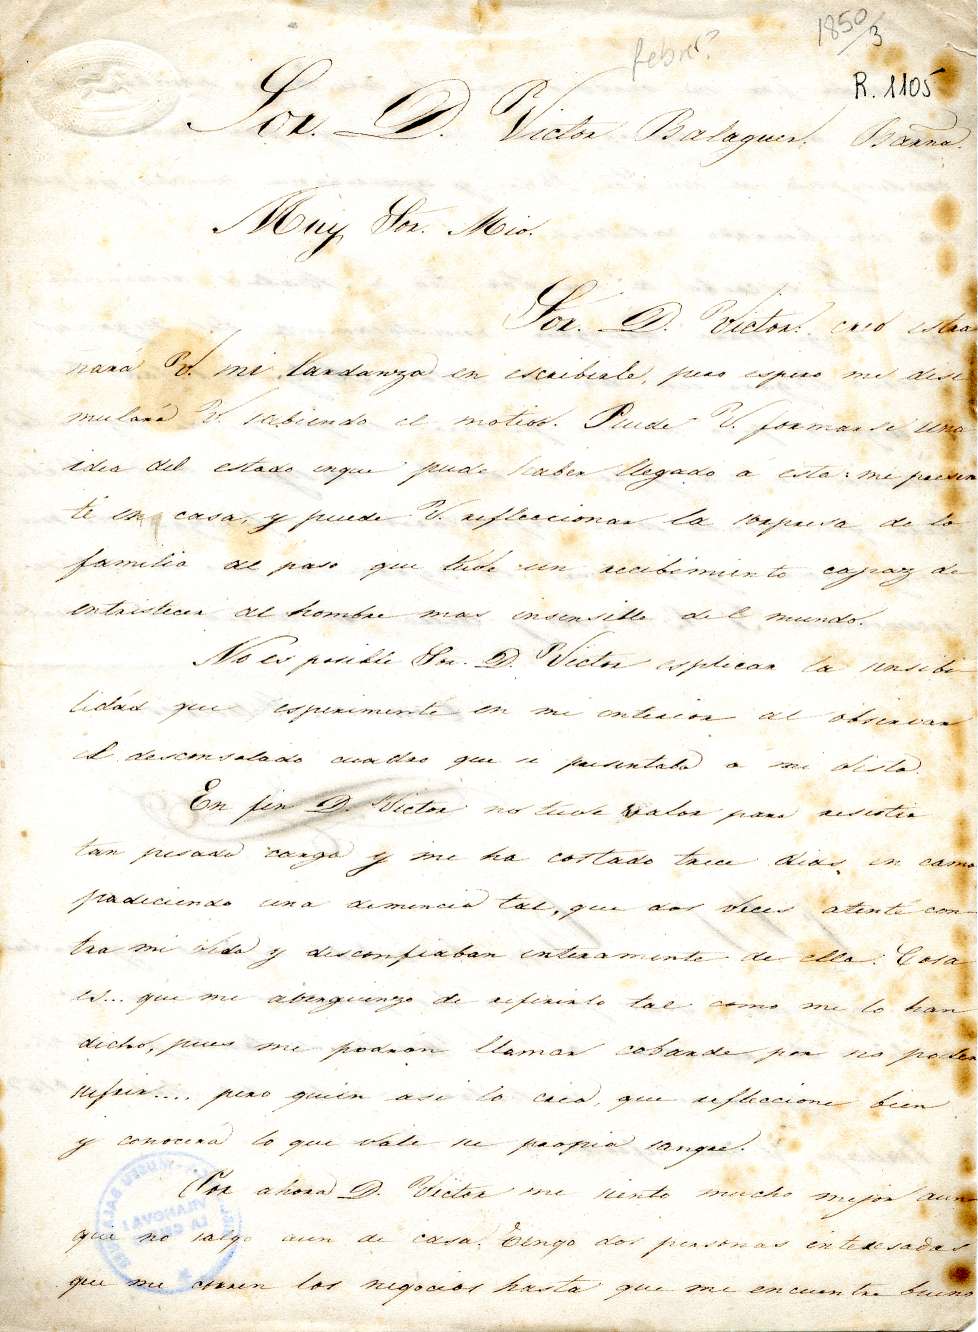 1850/3
febrer?
R. 1105
Sor. D. Victor Balaguer. Barna.
Muy Sor. Mio.
Sor. D. Victor. creo estra
ñará V. mi tardanza en escribirle, pero espero me desi
mulará V. sabiendo el motivo. Puede V. formarse una
idea del estado enque pude haber llegado á esta: me presen
té en casa, y puede V. refleccionar la sorpresa de la
familia al paso que tube un recibimiento capaz de
entristecer al hombre mas insensible del mundo.
No es posible Sor. D. Victor esplicar la sensibi
lidad que esperimenté en mi interior al observar
el desconsolado cuadro que se presentaba a mi vista.
En fin D. Victor no tuve valor para resistir
tan pesada carga y me ha costado trece dias en cama
padeciendo una demencia tal, que dos veces atenté con-
tra mi vida y desconfiaban enteramente de ella: Cosa
es... que me aberguenzo de referirlo tal como me lo han
dicho, pues me podrán llamar cobarde por no poder
sufrir.... pero quien asi lo crea, que refleccione bien
y conocerá lo que vale su propia sangre.
Por ahora D. Victor me siento mucho mejor aun
que no salgo aun de casa. Tengo dos personas interesadas
que me corren los negocios hasta que me encuentre bueno